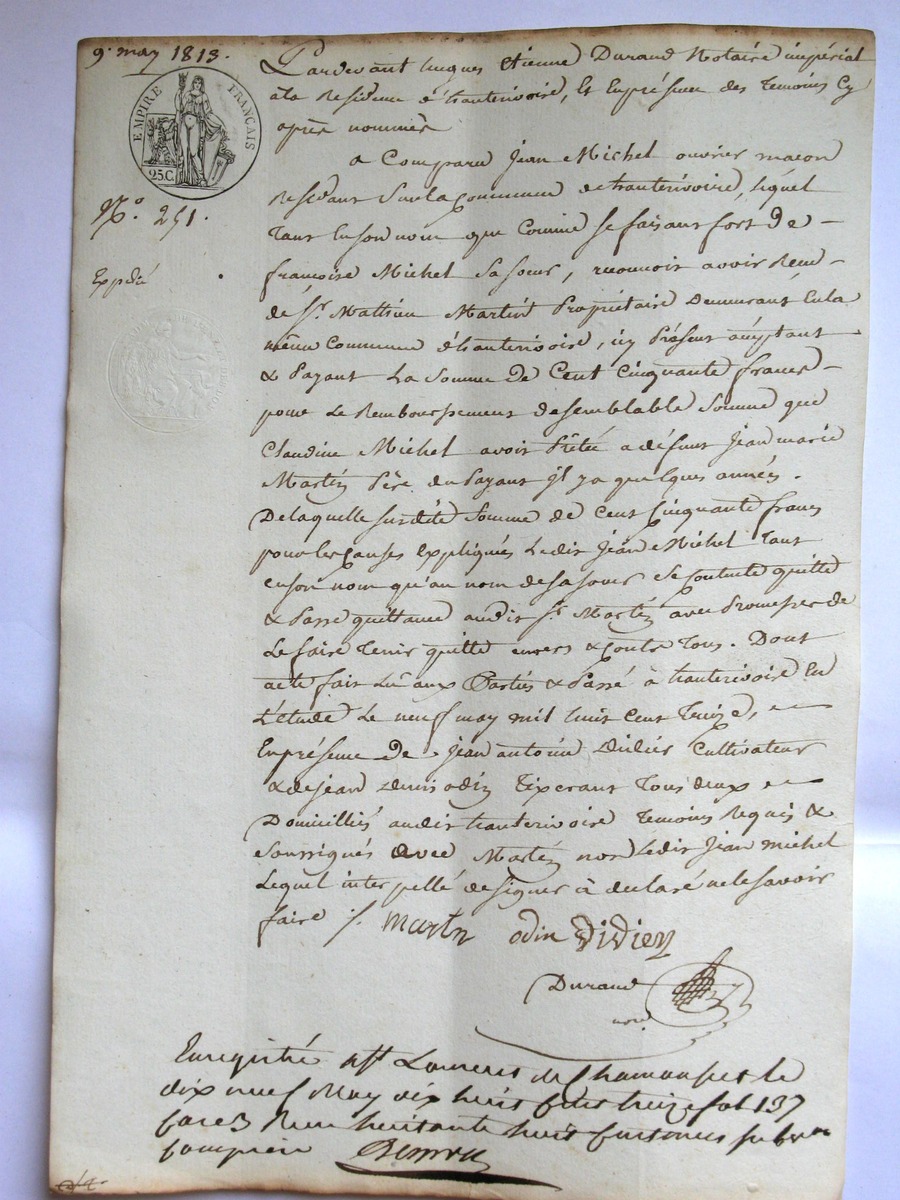 9. may 1813.
EMPIRE FRANÇAIS
25.C.
N.o 251.
Expédié
Pardevant Etienne Durand Notaire impérial
à la Residence d'hauterivoire, Et En présence des Temoins Cy
après nommés
a Comparu Jean Michel ouvrier maçon
Residant Sur la Commune d'hauterivoire, lequel
Tant En son nom que Comme se faisant fort de
françoise Michel Sa soeur, reconnoit avoir Recu
de Sr. Mathieu Martin Propriétaire Demeurant En la
même Commune d'hauterivoire, icy Présent acceptant
& Payant La Somme De Cent Cinquante francs
pour Le Remboursement de semblable Somme que
Claudine Michel avoit Prêtée a défunt Jean marie
Martin Père du Payant il y a quelques années.
De laquelle susdite Somme de Cent Cinquante francs
pour les Causes Expliquées Ledit Jean Michel Tant
en son nom qu'au nom de sa soeur Se Contente quitte
& Passe quittance audit Sr. Martin avec Promesse de
Le faire Tenir quitte envers & Contre Tous. Dont
acte fait Lu aux Parties & Passé à hauterivoire En
L'étude Le neuf may mil huit Cent Treize,
En présence De Jean antoine Didier Cultivateur
& de jean denis odin Tixerant Tous deux
Domiciliés audit hauterivoire Temoins Requis &
Soussignés avec Martin non Ledit Jean michel
Lequel interpellé de signer à declaré ne le savoir
faire /. martin odin Didier
Durand
nore
Enregistré à St Laurent de Chamousset le
dix neuf May dix huit cent treize fol 137
Case 3 Recu huitante huit centimes subvon
Comprise